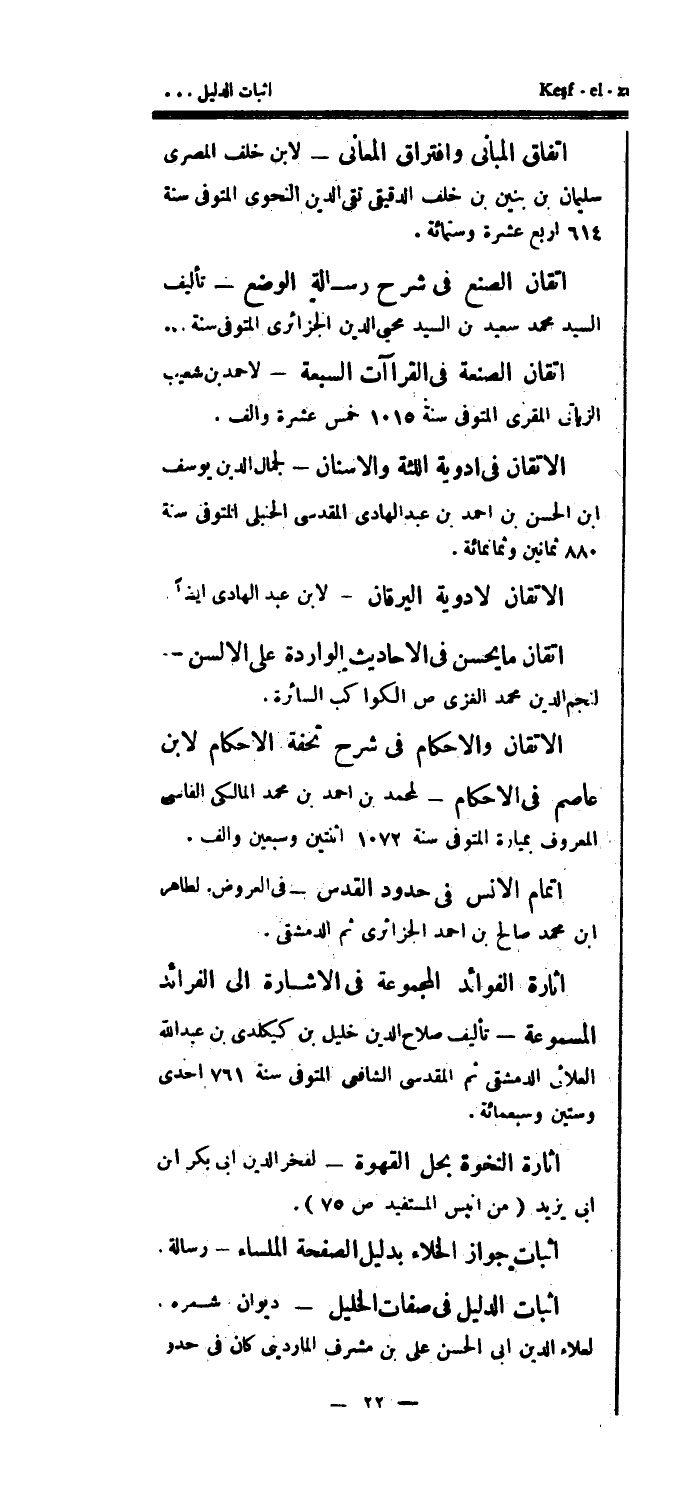 اثبات الدليل ... Keşf - el -
اتفاق المبانى وافتراق المعانى — لابن خلف المصرى
سليمان بن بنين بن خلف الدقيقى تقى‌الدين النحوى المتوفى سنة
٦١٤ اربع عشرة وستمائة .
اتقان الصنع فى شرح رسالة الوضع — تأليف
السيد محمد سعيد بن السيد محيى‌الدين الجزائرى المتوفى سنة ...
اتقان الصنعة فى القراآت السبعة — لاحمد بن شعيب
المقرى المتوفى سنة ١٠١٥ خمس عشرة والف .
الاتقان فى ادوية اللثة والاسنان — لجمال‌الدين يوسف
ابن الحسن بن احمد بن عبدالهادى المقدسى الحنبلى المتوفى سنة
٨٨٠ ثمانين وثمانمائة .
الاتقان لادوية اليرقان — لابن عبد الهادى ايضاً .
اتقان مايحسن فى الاحاديث الواردة على الالسن --
لنجم‌الدين محمد الغزى ص الكواكب السائرة .
الاتقان والاحكام فى شرح تحفة الاحكام لابن
عاصم فى الاحكام — لمحمد بن احمد بن محمد المالكى الفاسى
المعروف بميارة المتوفى سنة ١٠٧٢ اثنتين وسبعين والف .
اتمام الانس فى حدود القدس — فى العروض. لطاهر
ابن محمد صالح بن احمد الجزائرى ثم الدمشقى .
اثارة الفوائد المجموعة فى الاشارة الى الفرائد
المسموعة — تأليف صلاح‌الدين خليل بن كيكلدى بن عبدالله
العلائى الدمشقى ثم المقدسى الشافعى المتوفى سنة ٧٦١ احدى
وستين وسبعمائة .
اثارة النخوة بحل القهوة — لفخرالدين ابى بكر ابن
ابى يزيد ( من انيس المستفيد ص ٧٥ ) .
اثبات جواز الخلاء بدليل الصفحة الملساء — رسالة .
اثبات الدليل فى صفات الخليل — ديوان شعره .
لعلاء الدين ابى الحسن على بن مشرف الماردينى كان فى حدو
— ٢٢ —